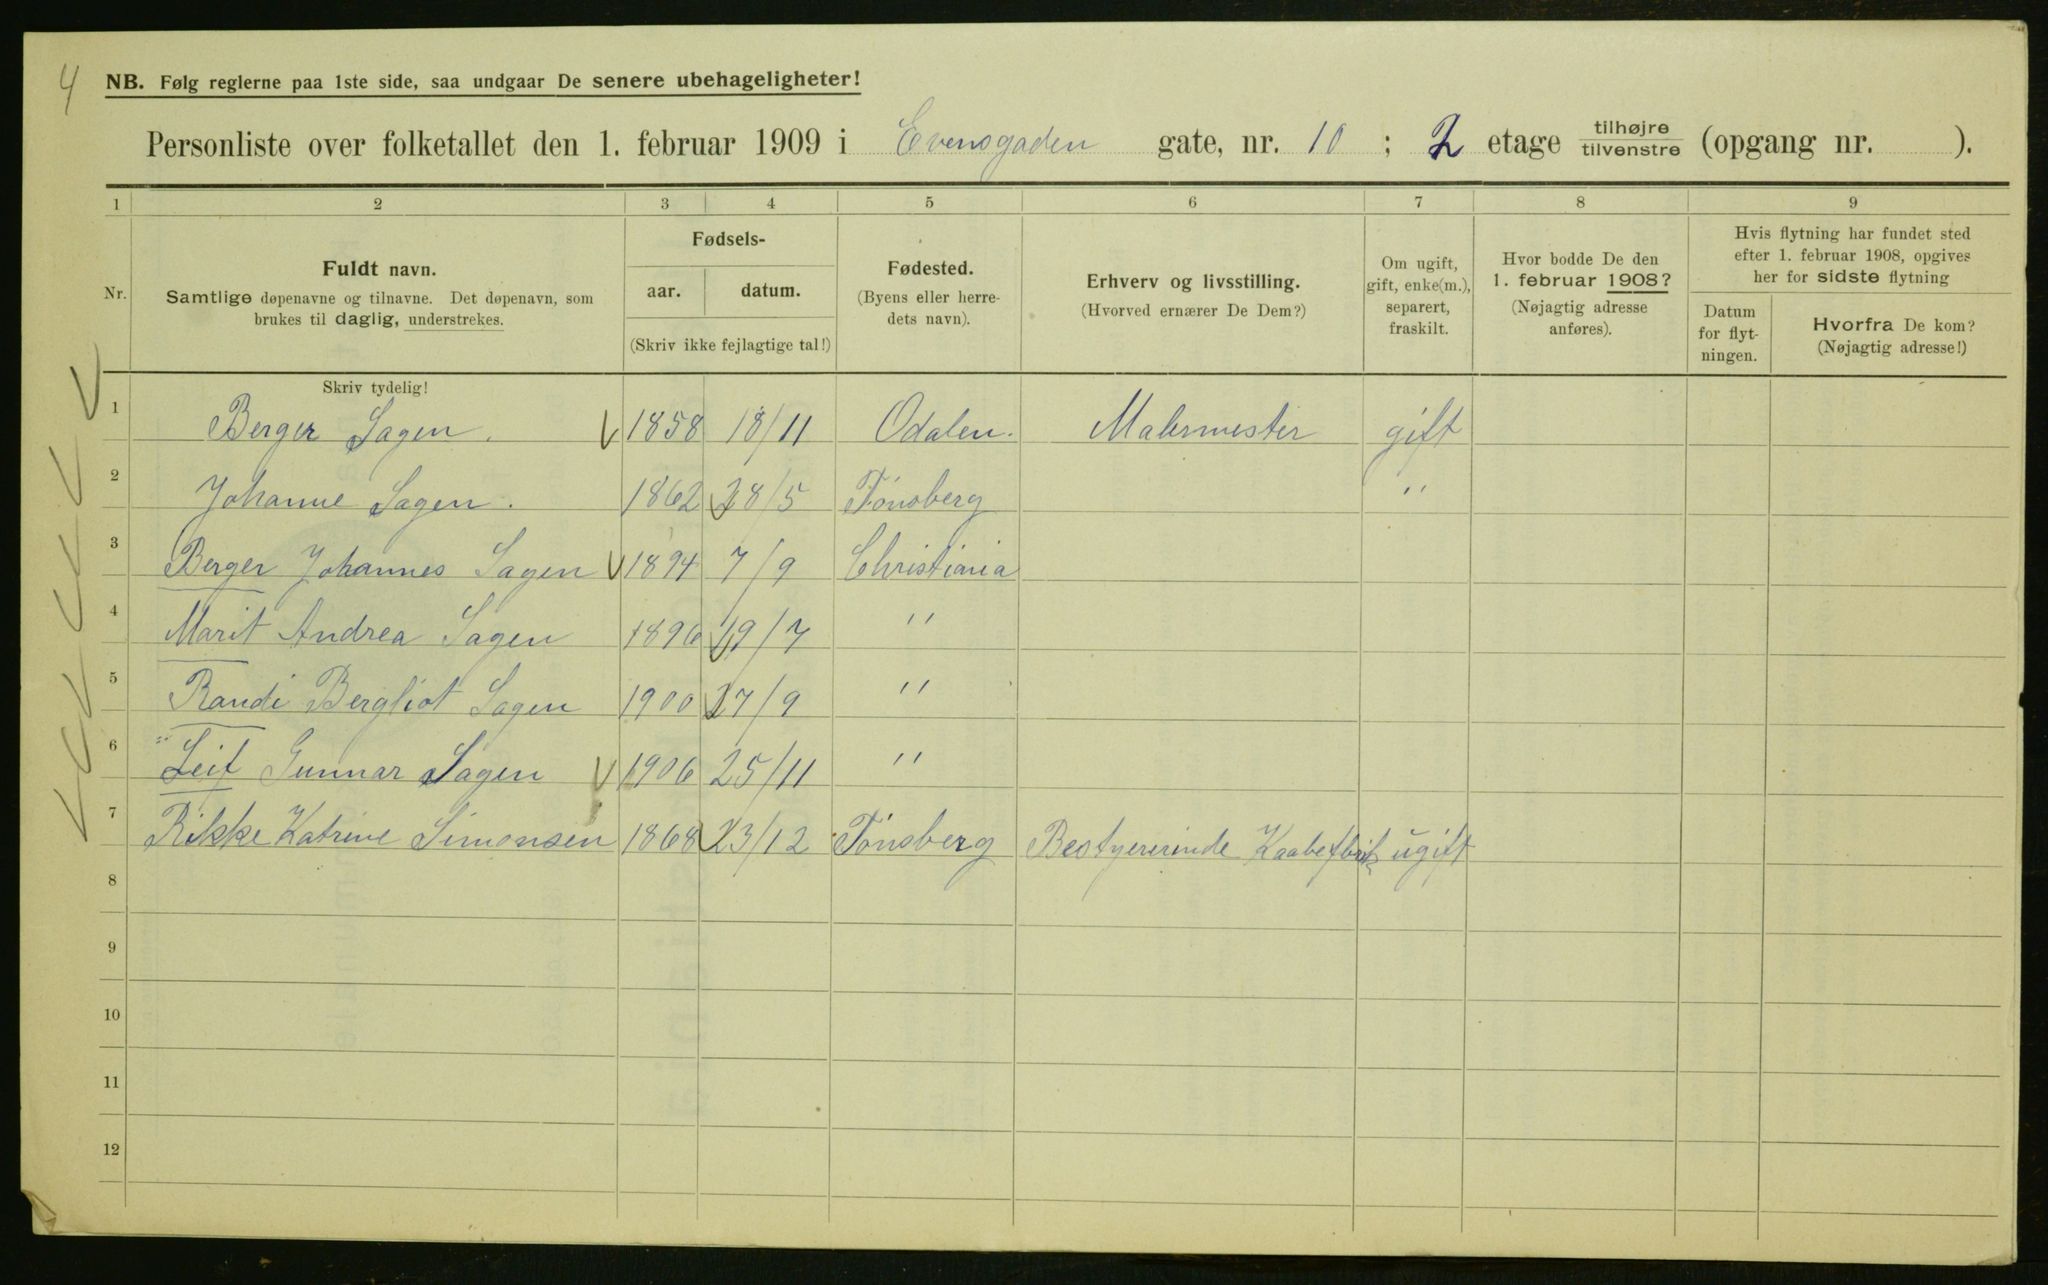 4
NB. Følg reglerne paa 1ste side, saa undgaar De senere ubehageligheter!
Personliste over folketallet den 1. februar 1909 i Evensgaden gate, nr. 10 ; 2 etage tilhøjre tilvenstre (opgang nr. ).
1 2 3 4 5 6 7 8 9
Nr.
Fuldt navn.
Samtlige døpenavne og tilnavne. Det døpenavn, som
brukes til daglig, understrekes.
Skriv tydelig!
Fødsels-
aar. datum.
(Skriv ikke fejlagtige tal!)
Fødested.
(Byens eller herre-
dets navn).
Erhverv og livsstilling.
(Hvorved ernærer De Dem?)
Om ugift,
gift, enke(m.),
separert,
fraskilt.
Hvor bodde De den
1. februar 1908?
(Nøjagtig adresse
anføres).
Hvis flytning har fundet sted
efter 1. februar 1908, opgives
her for sidste flytning
Datum
for flyt-
ningen.
Hvorfra De kom?
(Nøjagtig adresse!)
1 Berger Sagen. 1858 18/11 Odalen. Malermester gift
2 Johanne Sagen. 1862 28/5 Tönsberg "
3 Berger Johannes Sagen 1894 7/9 Christiania
4 Marit Andrea Sagen 1896 19/7 "
5 Randi Bergliot Sagen 1900 27/9 "
6 Leif Gunnar Sagen 1906 25/11 "
7 Rikke Katrine Simonsen 1868 23/12 Tönsberg Bestyererinde ugift
8
9
10
11
12